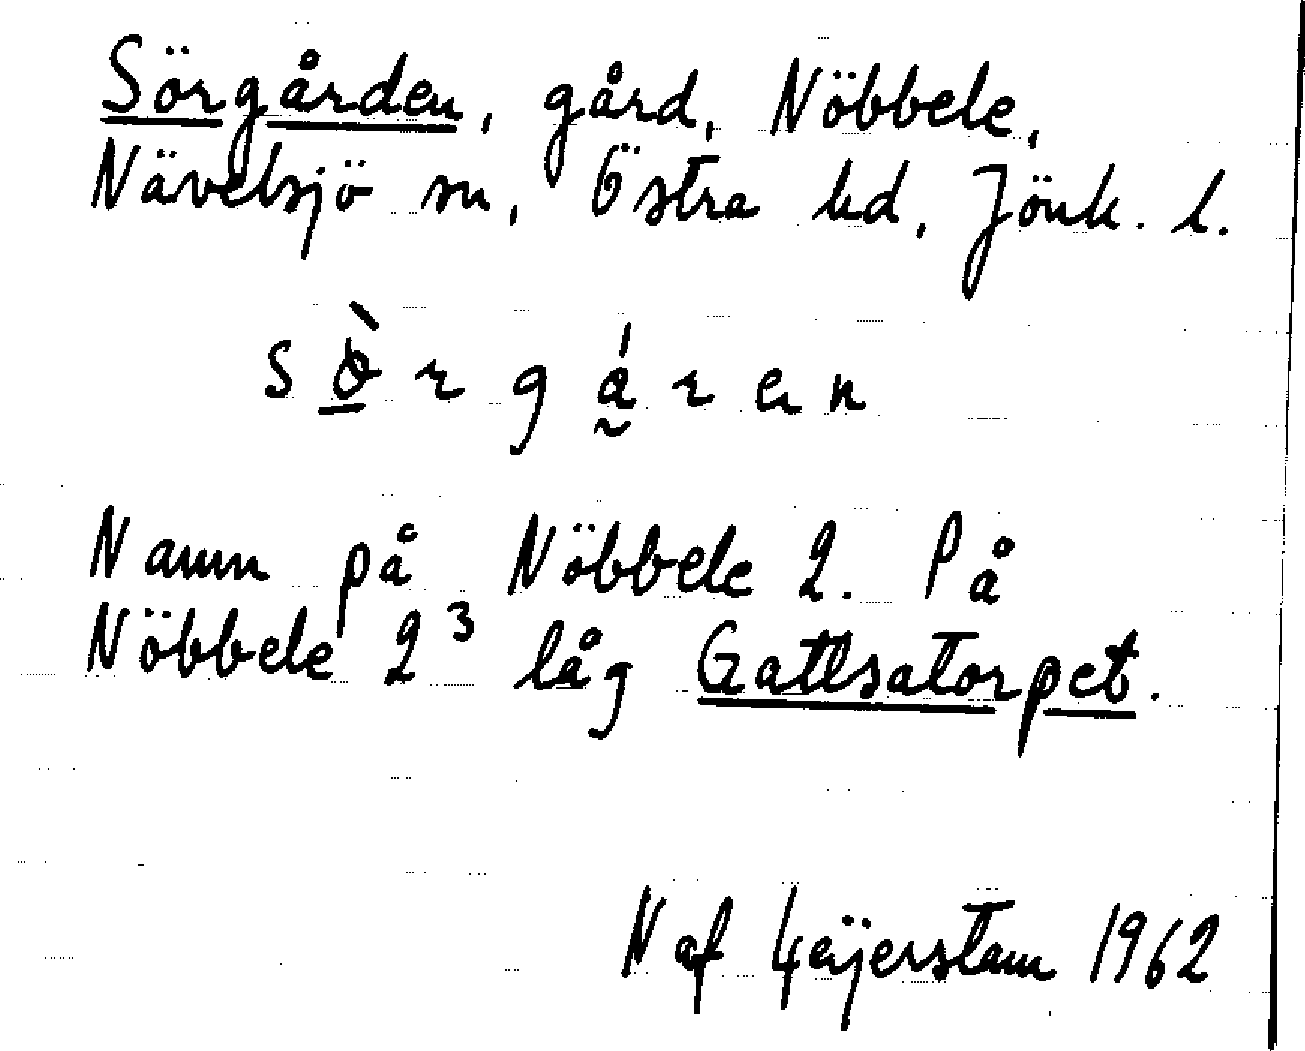 Sörgården, gård, Nöbbele,
Nävelsjö sn, Östra hd, Jönk. l.
sö̀rgáren
Namn på Nöbbele 2. På
Nöbbele 2³ låg Gattsatorpet.
N af Geijerstam 1962